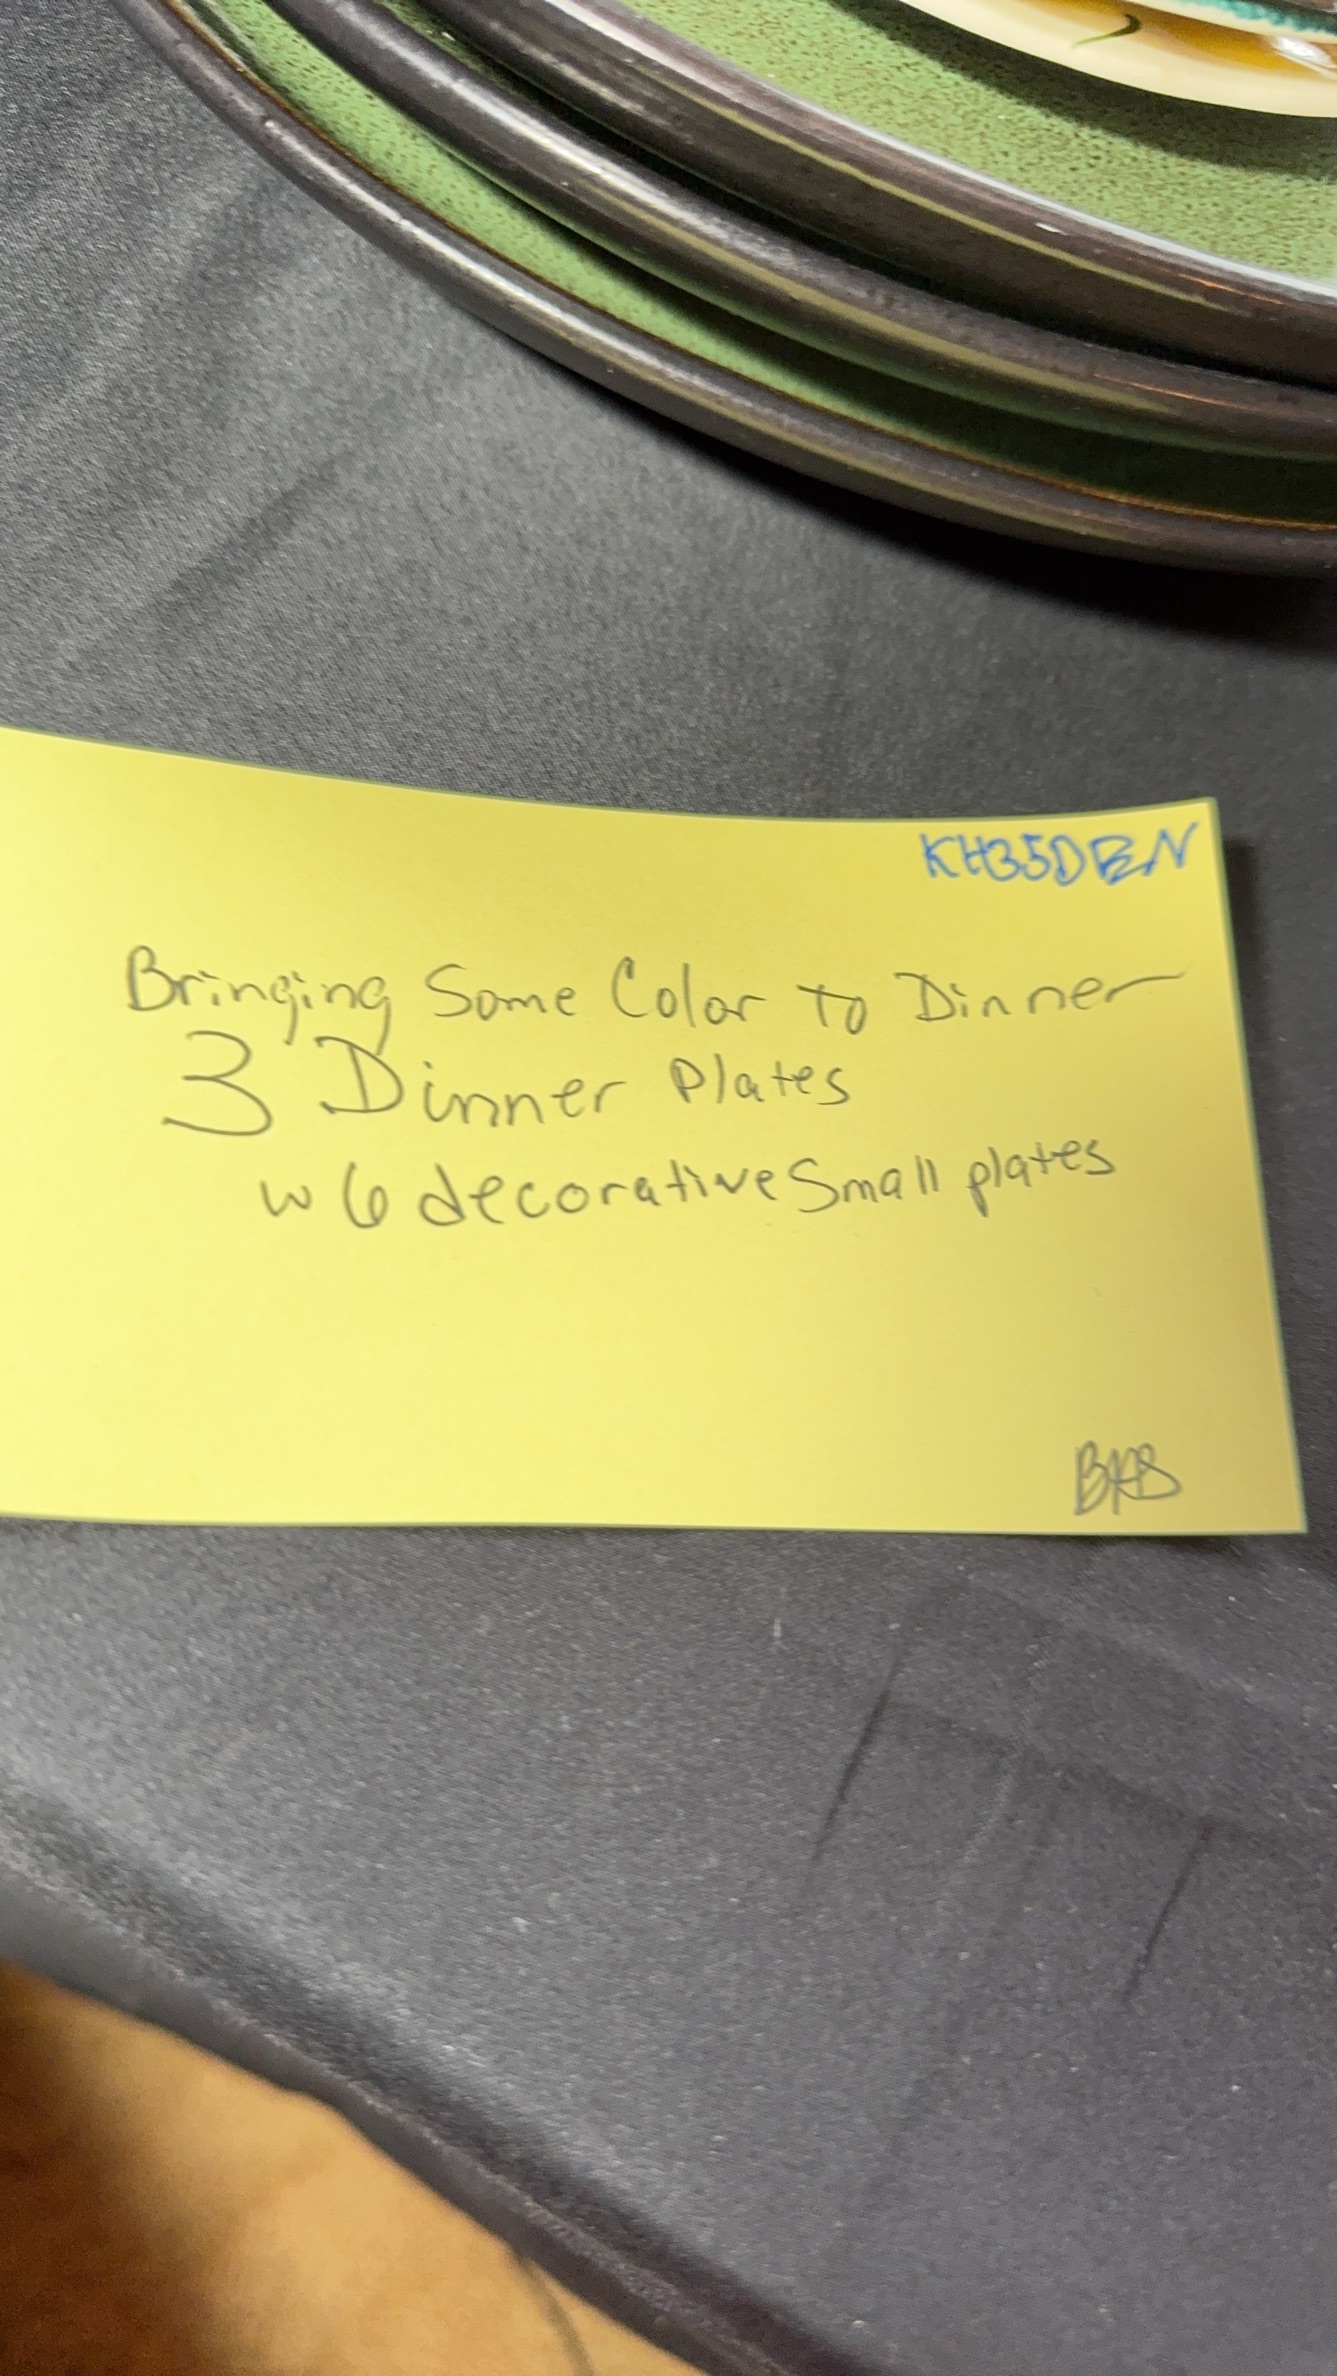 KH35DEN
Bringing Some Color to Dinner
3 Dinner Plates
w 6 decorative Small plates